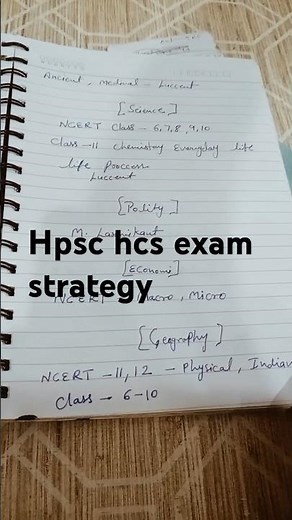 Ancient, Medival - Luccent
[Science]
NCERT Class - 6,7,8,9,10
Class -11 Chemistry Everyday life
life proccess
Luccent
[Polity]
M. Laxmikant
Hpsc hcs exam
strategy
[Economi]
NCERT Macro, Micro
[Geography]
NCERT -11,12 - Physical, Indian
Class - 6-10